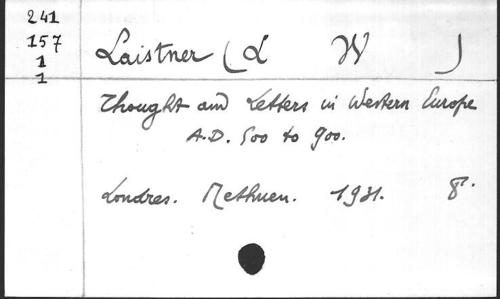 241
157
1
1
Laistner (L W )
Thought and Letters in Western Europe
A.D. 500 to 900.
Londres. Methuen. 1931. 8°.